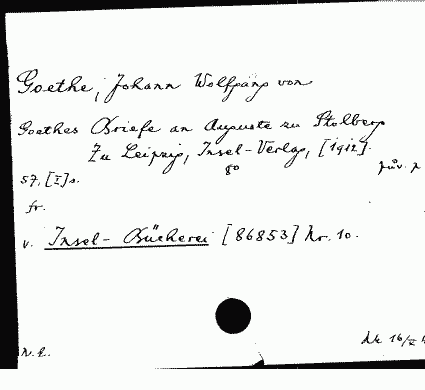 Goethe, Johann Wolfgang von
Goethes Briefe an Auguste zu Stolberg
Zu Leipzig, Insel-Verlag, [1912].
8o
57, [I] s.
fr.
v. Insel-Bücherei [86853] Nr. 10.